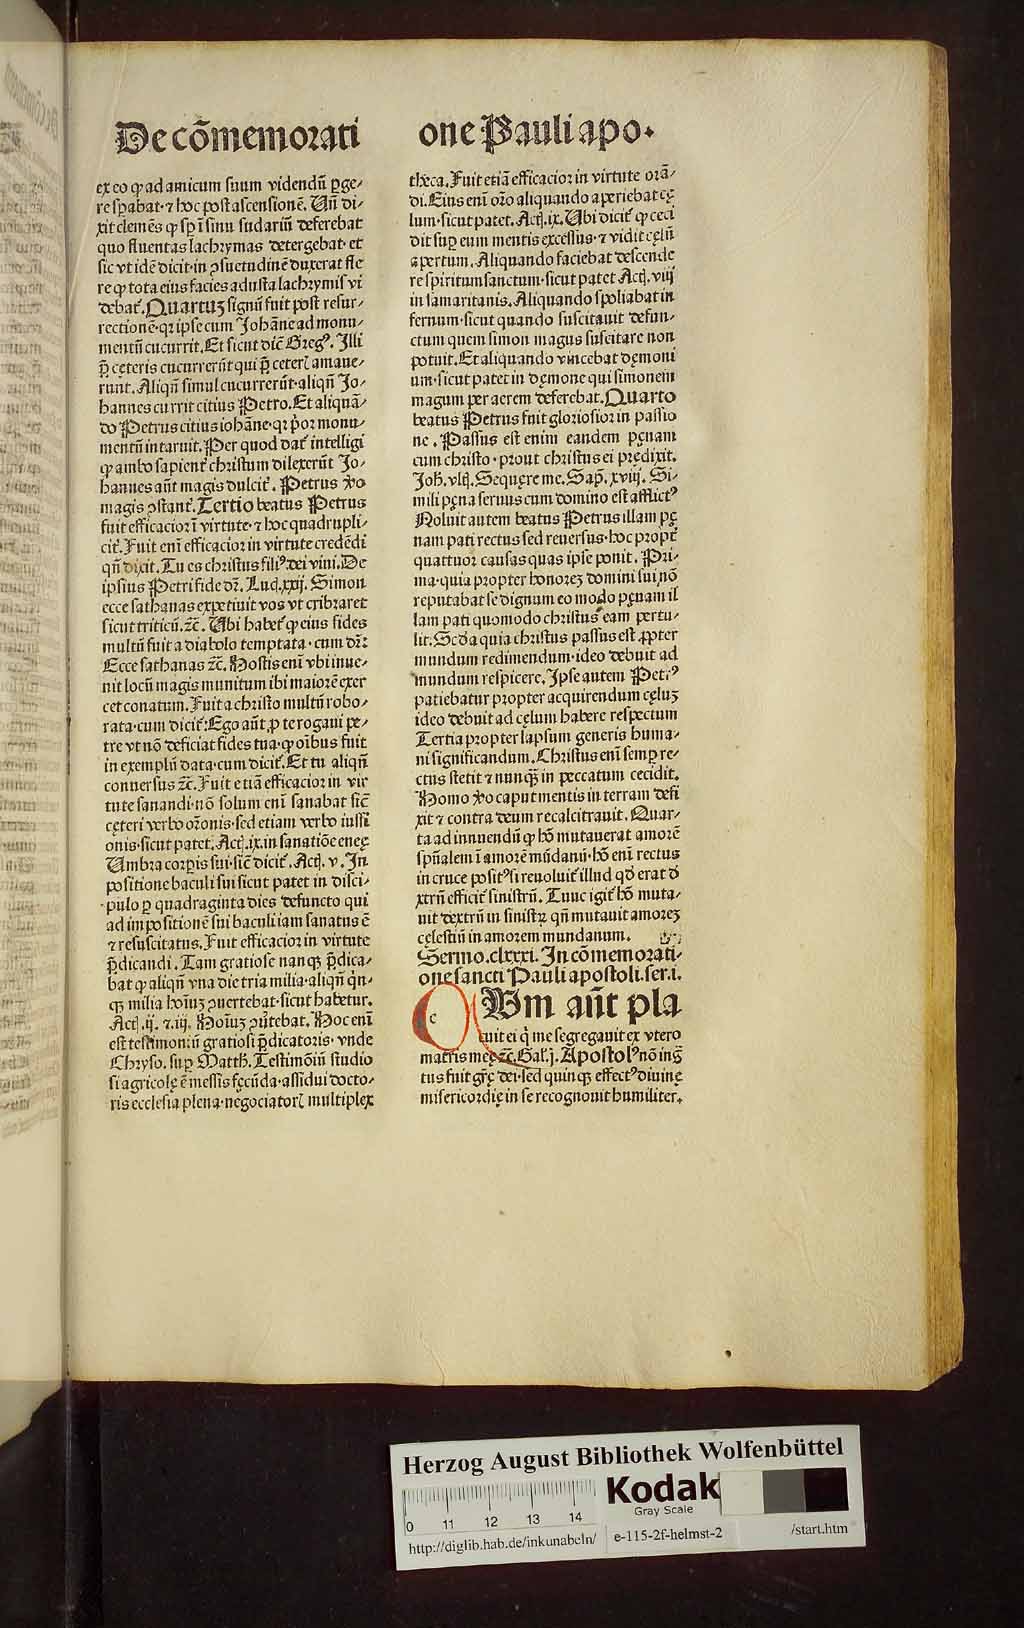 De cōmemorati one Pauli apo.
ex eo ꝙ ad amicum suum videndū ꝑge⸗
re sꝑabat· ⁊ hoc post ascensionē. Uñ di⸗
xit clemēs ꝙ sꝑ ī sinu sudariū deferebat
quo fluentas lachrymas detergebat· et
sic vt idē dicit· in ꝯsuetudinē duxerat fle
re ꝙ tota eius facies adusta lachrymis vi
debat᷑. Quartuꝫ signū fuit post resur⸗
rectionē· qꝛ ipse cum Johāne ad monu⸗
mentū cucurrit. Et sicut dic̄ Gregꝰ. Illi
p̄ cęteris cucurrerūt qui p̄ ceterꝭ amaue⸗
runt. Aliqñ simul cucurrerūt· aliqñ Jo⸗
hannes currit citius Petro. Et aliquā⸗
do Petrus citius iohāne· qꝛ p̓or monu⸗
mentū intrauit. Per quod dat᷑ intelligi
ꝙ ambo sapient᷑ christum dilexerūt Jo⸗
hannes aūt magis dulcit᷑. Petrus v̓o
magis ꝯstant᷑. Tertio beatus Petrus
fuit efficacior ī virtute· ⁊ hoc quadrupli⸗
cit᷑. Fuit enī efficacior in virtute credēdi
qñ dixit. Tu es christus filiꝰ dei viui. De
ipsius Petri fide dr̄. Luc̄. xxij. Simon
ecce sathanas expetiuit vos vt cribraret
sicut triticū. ⁊c̄. Ubi habet᷑ ꝙ eius fides
multū fuit a diabolo temptata· cum dr̄:
Ecce sathanas ⁊c̄. Hostis enī vbi inue⸗
nit locū magis munitum ibi maiorē exer
cet conatum. Fuit a christo multū robo⸗
rata· cum dicit᷑: Ego aūt ꝓ te rogaui pe⸗
tre vt nō deficiat fides tua· ꝙ oībus fuit
in exemplū data· cum dicit᷑. Et tu aliqñ
conuersus ⁊c̄. Fuit etiā efficacior in vir
tute sanandi· nō solum enī sanabat sic̄
cęteri verbo orōnis· sed etiam verbo iussi
onis· sicut patet. Act̄. ix. in sanatiōe eneę
Umbra corꝑis sui· sic̄ dicit᷑. Act̄. v. In
positione baculi sui sicut patet in disci⸗
pulo ꝑ quadraginta dies defuncto qui
ad impositionē sui baculi iam sanatus ē
⁊ resuscitatus. Fuit efficacior in virtute
p̄dicandi. Tam gratiose nanqꝫ p̄dica⸗
bat ꝙ aliqñ vna die tria milia· aliqñ qn̓⸗
qꝫ milia hoīuꝫ ꝯuertebat· sicut habetur.
Act̄. ij. ⁊. iij. Hoīuꝫ ꝯu̓tebat. Hoc enī
est testimoniū gratiosi p̄dicatoris· vnde
Chryso. suꝑ Matth̄. Testimōiū studio
si agricolę ē messis fęcūda· assidui docto⸗
ris ecclesia plena· negociatorꝭ multiplex
theca. Fuit etiā efficacior in virtute orā⸗
di. Eius enī orō aliquando aperiebat cę
lum· sicut patet. Act̄. ix. Ubi dicit᷑ ꝙ ceci
dit suꝑ eum mentis excessus· ⁊ vidit cęlū
apertum. Aliquando faciebat descende
re spiritum sanctum· sicut patet Act̄. viij
in samaritanis. Aliquando spoliabat in
fernum· sicut quando suscitauit defun⸗
ctum quem simon magus suscitare non
potuit. Et aliquando vincebat dęmoni
um· sicut patet in dęmone qui simonem
magum per aerem deferebat. Quarto
beatus Petrus fuit gloriosior in passio
ne. Passus est enim eandem pęnam
cum christo· prout christus ei prędixit.
Joh̄. vlt̄. Sequere me. Sap̄. xviij. Si⸗
mili pęna seruus cum domino est afflictꝰ
Noluit autem beatus Petrus illam pę
nam pati rectus sed reuersus· hoc propt᷑
quattuor causas quas ipse ponit. Pri⸗
ma· quia propter honoreꝫ domini sui nō
reputabat se dignum eo modo pęnam il
lam pati quomodo christus eam pertu⸗
lit. Scd̓a quia christus passus est ꝓpter
mundum redimendum· ideo debuit ad
mundum respicere. Ipse autem Petrꝰ
patiebatur propter acquirendum cęluꝫ
ideo debuit ad cęlum habere respectum
Tertia propter lapsum generis huma⸗
ni significandum. Christus enī semꝑ re⸗
ctus stetit ⁊ nunqꝫ̄ in peccatum cecidit.
Homo v̓o caput mentis in terram defi
xit ⁊ contra deum recalcitrauit. Quar⸗
ta ad innuendū ꝙ hō mutauerat amorē
spūalem ī amorē mūdanū· hō enī rectus
in cruce positꝰ si reuoluit᷑ illud qd̓ erat d̓
xtrū efficit᷑ sinistrū. Tunc igit᷑ hō muta⸗
uit dextrū in sinistrꝝ qñ mutauit amoreꝫ
cęlestiū in amorem mundanum.
Sermo. clxxxi. In cōmemorati⸗
one sancti Pauli apostoli. ser. i.
c Um aūt pla
cuit ei q̇ me segregauit ex vtero
matris meę ⁊c̄. Gal̓. j. Apostolꝰ nō ing̓
tus fuit gr̄ę dei· sed quinqꝫ effectꝰ diuinę
misericordię in se recognouit humiliter.
Herzog August Bibliothek Wolfenbüttel
Kodak
Gray Scale
0 11 12 13 14
http://diglib.hab.de/inkunabeln/ e-115-2f-helmst-2 /start.htm